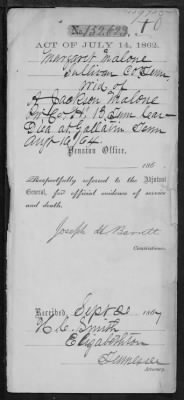 No. 152,623
ACT OF JULY 14, 1862.
Margaret Malone
Sullivan Co Tenn
Wid. of
A. Jackson Malone
Co. 13 Tenn Cav
Died at Gallatin Tenn
Aug 16/64
Pension Office,
186 .
Respectfully referred to the Adjutant
General, for official evidence of service
and death.
Joseph H Barrett
Commissioner.
Received, Sept 2 1867
H. C. Smith
Elizabethton
Tennessee
Attorney.